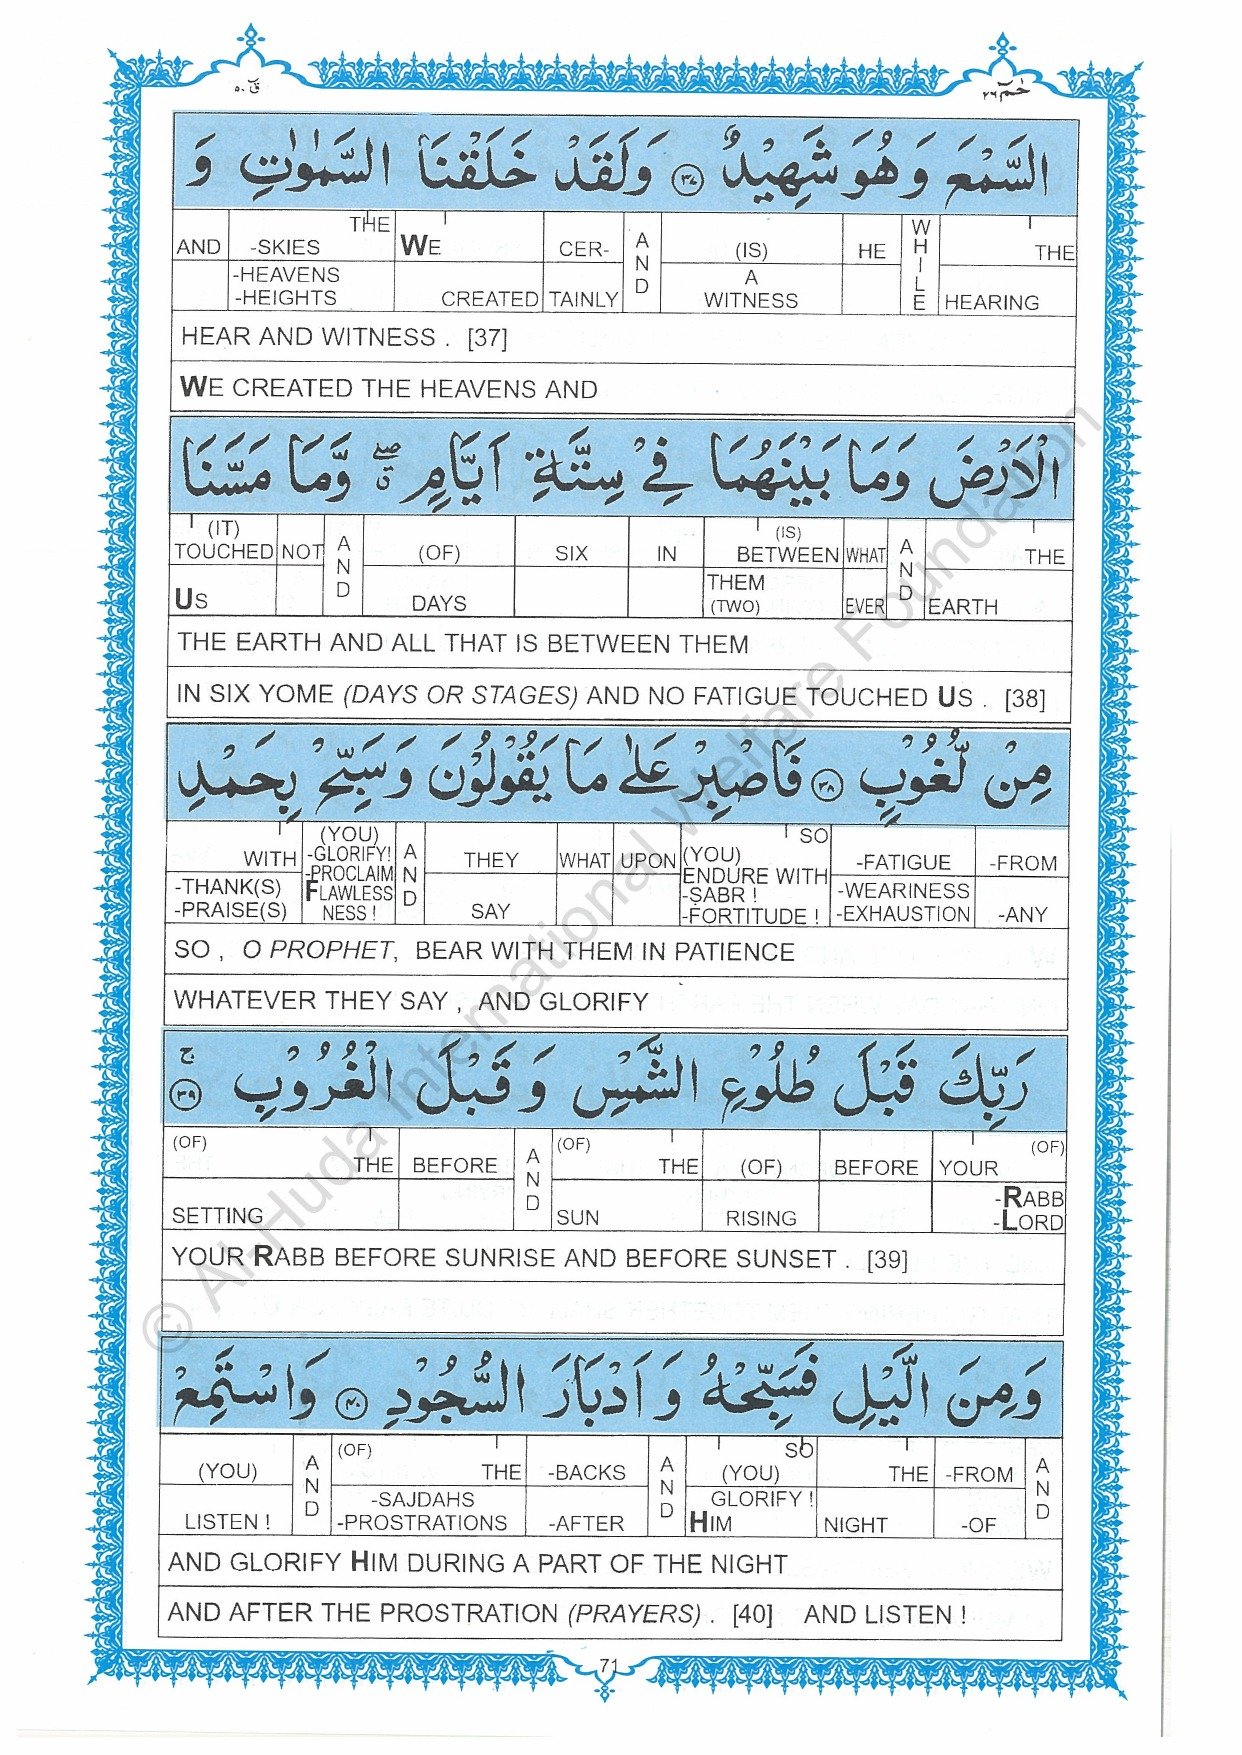 قٓ ٥٠
حٰمٓ ٢٦
السَّمْعَ وَهُوَ شَهِيْدٌ ﴿٣٧﴾ وَلَقَدْ خَلَقْنَا السَّمٰوٰتِ وَ
AND -SKIES THE WE CER- AND (IS) HE WHILE THE
-HEAVENS -HEIGHTS CREATED TAINLY A WITNESS HEARING
HEAR AND WITNESS . [37]
WE CREATED THE HEAVENS AND
الْاَرْضَ وَمَا بَيْنَهُمَا فِيْ سِتَّةِ اَيَّامٍ ۖق وَّمَا مَسَّنَا
(IT) TOUCHED NOT AND (OF) SIX IN (IS) BETWEEN WHAT AND THE
US DAYS THEM (TWO) EVER EARTH
THE EARTH AND ALL THAT IS BETWEEN THEM
IN SIX YOME (DAYS OR STAGES) AND NO FATIGUE TOUCHED US . [38]
مِنْ لُّغُوْبٍ ﴿٣٨﴾ فَاصْبِرْ عَلٰى مَا يَقُوْلُوْنَ وَسَبِّحْ بِحَمْدِ
WITH (YOU) -GLORIFY! -PROCLAIM FLAWLESS NESS ! AND THEY WHAT UPON (YOU) SO ENDURE WITH -FATIGUE -FROM
-THANK(S) -PRAISE(S) SAY -SABR ! -FORTITUDE ! -WEARINESS -EXHAUSTION -ANY
SO , O PROPHET, BEAR WITH THEM IN PATIENCE
WHATEVER THEY SAY , AND GLORIFY
رَبِّكَ قَبْلَ طُلُوْعِ الشَّمْسِ وَقَبْلَ الْغُرُوْبِ ۚ ﴿٣٩﴾
(OF) THE BEFORE AND (OF) THE (OF) BEFORE YOUR (OF)
SETTING SUN RISING -RABB -LORD
YOUR RABB BEFORE SUNRISE AND BEFORE SUNSET . [39]
وَمِنَ الَّيْلِ فَسَبِّحْهُ وَاَدْبَارَ السُّجُوْدِ ﴿٤٠﴾ وَاسْتَمِعْ
(YOU) AND (OF) THE -BACKS AND (YOU) SO THE -FROM AND
LISTEN ! -SAJDAHS -PROSTRATIONS -AFTER GLORIFY ! HIM NIGHT -OF
AND GLORIFY HIM DURING A PART OF THE NIGHT
AND AFTER THE PROSTRATION (PRAYERS) . [40] AND LISTEN !
71
© Al-Huda International Welfare Foundation